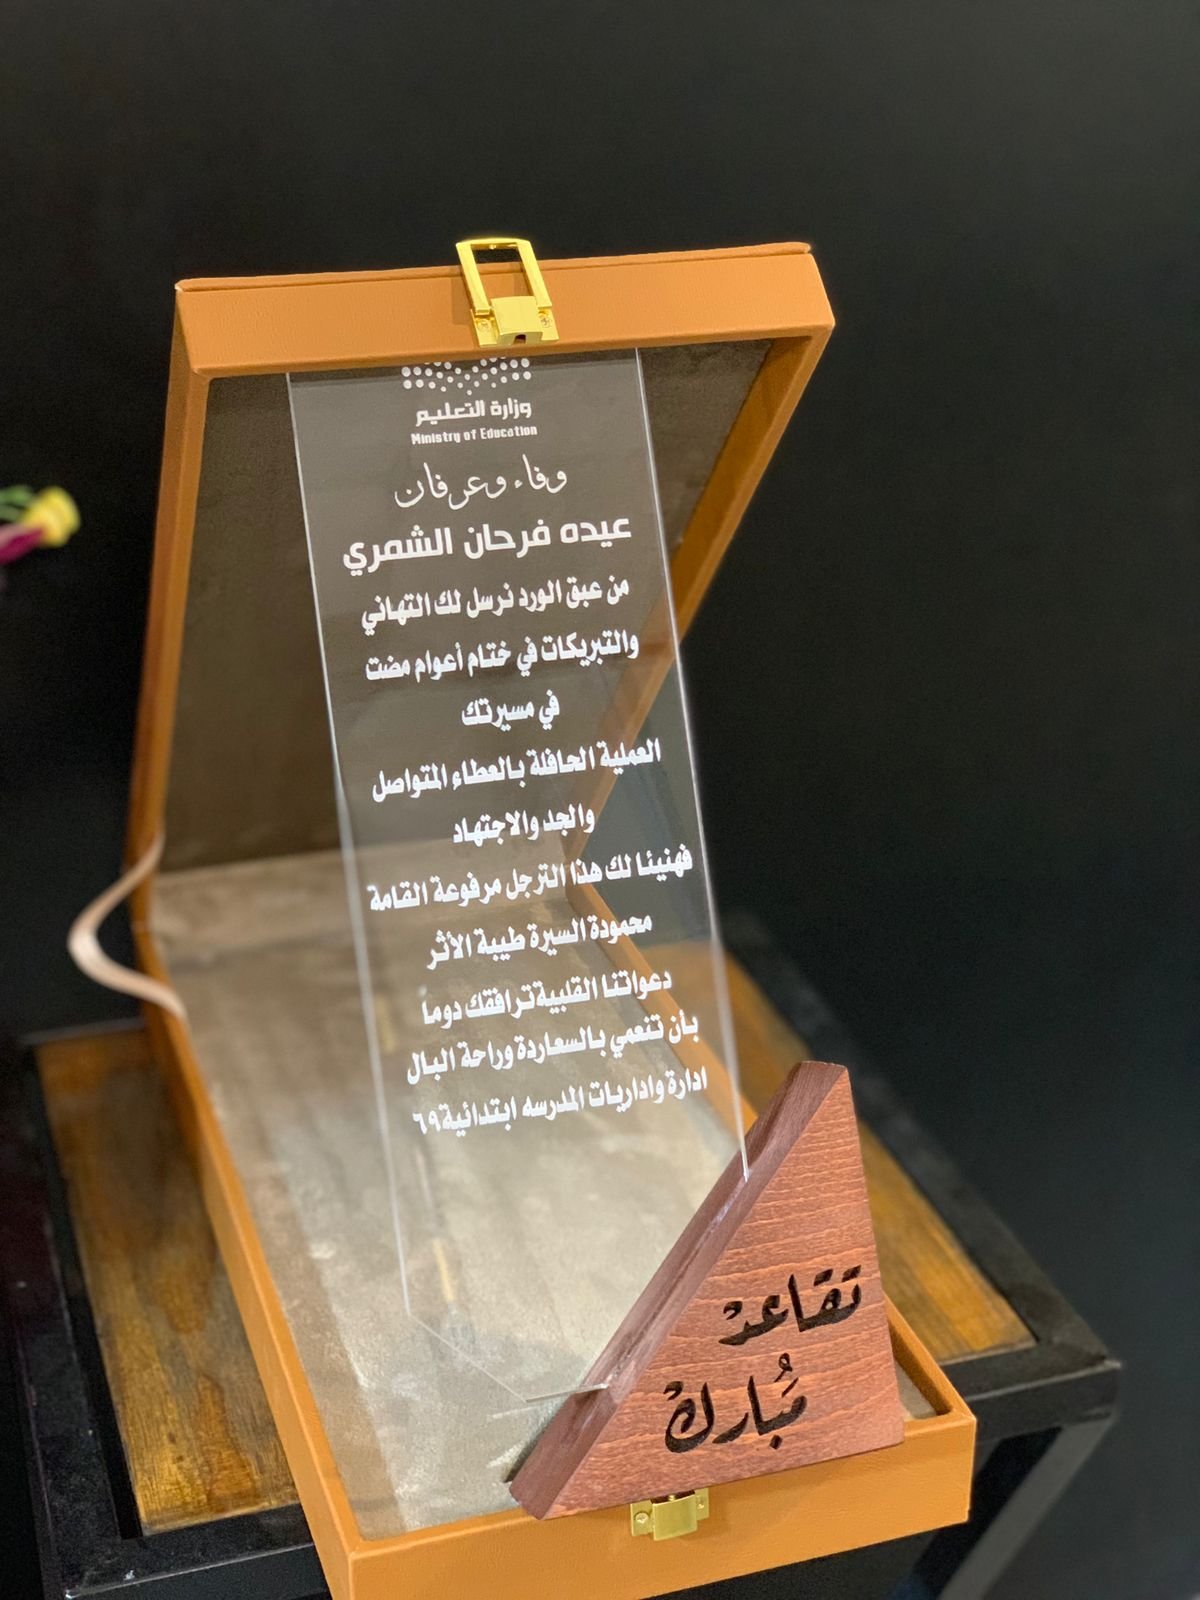 وزارة التعليم
Ministry of Education
وفاء وعرفان
عيده فرحان الشمري
من عبق الورد نرسل لك التهاني
والتبريكات في ختام أعوام مضت
في مسيرتك
العملية الحافلة بالعطاء المتواصل
والجد والاجتهاد
فهنيئا لك هذا الترجل مرفوعة القامة
محمودة السيرة طيبة الأثر
دعواتنا القلبية ترافقك دوما
بأن تنعمي بالسعاردة وراحة البال
ادارة واداريات المدرسه ابتدائية ٦٩
تقاعد
مُبارك